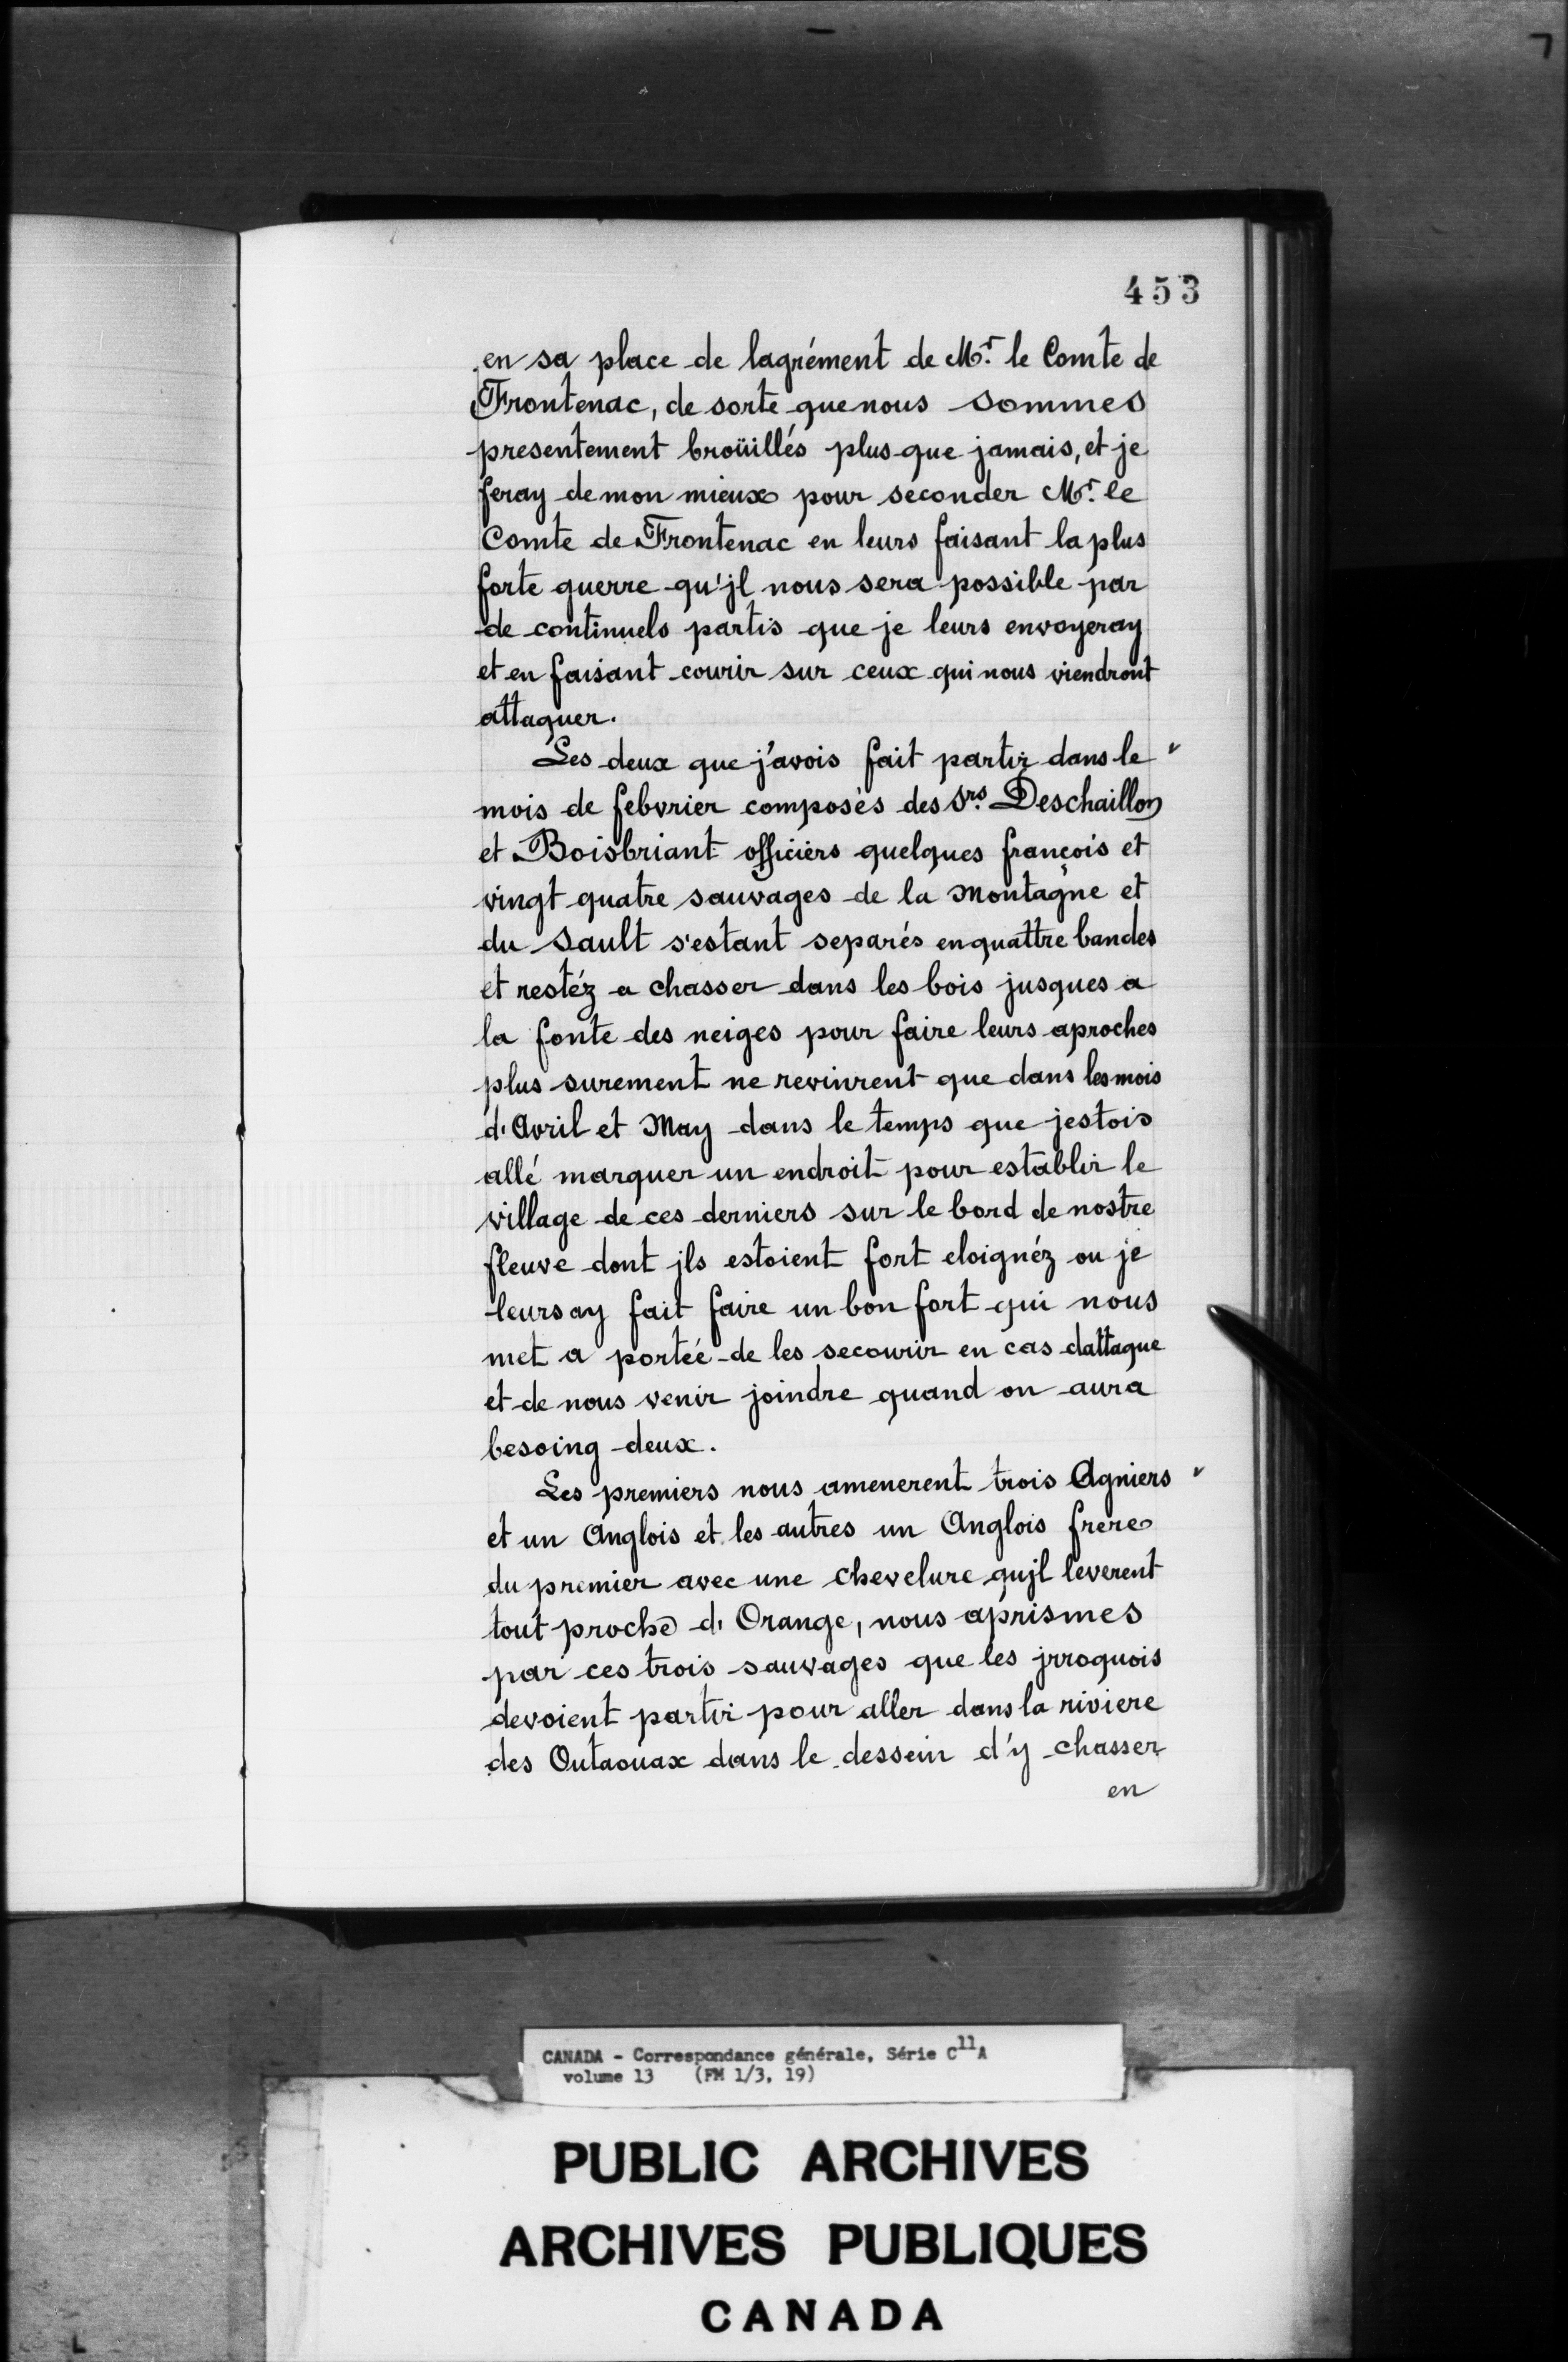 7
453
en sa place de lagrément de Mr. le Comte de
Frontenac, de sorte que nous sommes
presentement broüillés plus que jamais, et je
feray de mon mieux pour séconder Mr. le
Comte de Frontenac en leurs faisant la plus
forte guerre qu'jl nous sera possible par
de continuels partis que je leurs envoyeray
et en faisant courir sur ceux qui nous viendront
attaquer.
Les deux que j'avois fait partir dans le
mois de febvrier composés des Srs. Deschaillon
et Boisbriant officiers quelques françois et
vingt quatre sauvages de la Montagne et
du Sault s'estant separés en quattre bandes
et restéz a chasser dans les bois jusques a
la fonte des neiges pour faire leurs aproches
plus surement ne revinrent que dans les mois
d'Avril et May dans le temps que jestois
allé marquer un endroit pour establir le
village de ces derniers sur le bord de nostre
fleuve dont jls estoient fort eloignéz ou je
leurs ay fait faire un bon fort qui nous
met a portée de les secourir en cas dattaque
et de nous venir joindre quand on aura
besoing deux.
Les premiers nous amenerent trois Agniers
et un Anglois et les autres un Anglois frere
du premier avec une chevelure qujl leverent
tout proche d'Orange, nous aprismes
par ces trois sauvages que les jrroquois
devoient partir pour aller dans la riviere
des Outaouax dans le dessein d'y chasser
en
CANADA - Correspondance générale, Série C11A
volume 13 (FM 1/3, 19)
PUBLIC ARCHIVES
ARCHIVES PUBLIQUES
CANADA